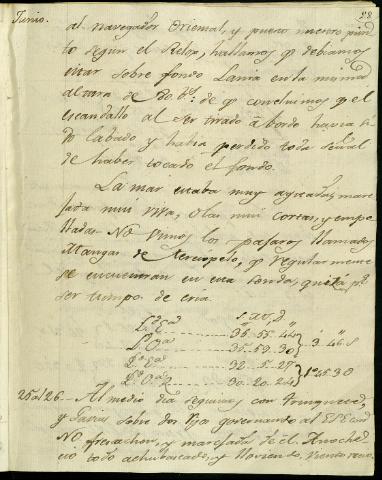 28
Junio.
al navegador Oriental, y puesto nuestro pun-
to segun el Relox, hallamos q.e debiamos
estar sobre fondo Lama en la misma
altura de 80 b.s: de q.e concluimos q.e el
escandallo al ser tirado á bordo havia si-
do labado y havia perdido toda señal
de haber tocado el fondo.
La mar estaba muy agitada, mare-
jada mui viva, olas mui cortas, y ampo-
lladas. No vimos los pajaros llamados
Mangas de terciopelo, q.e regularmente
se encuentran en esta sonda, quizá p.r
ser tiempo de cria.
S. av. d.
L.d E.a 35.55.44
L.d O.a 35.59.30 } 3'46" S
L.a E.a 32.5.27
L.a O.a 30.20.24 } 1°45'30
25 al 26 - Al medio dia seguimos con trinquete,
y Gavias sobre dos rizos governando al E¼SE con
NO. frescachon, y marejada de él. Anoche-
ció todo achubascado, y lloviendo, viento recio.